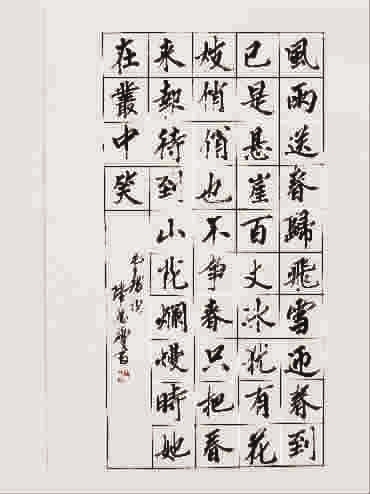 風雨送春歸飛雪迎春到
已是悬崖百丈冰犹有花
枝俏俏也不爭春只把春
来報待到山花爛熳時她
在叢中笑